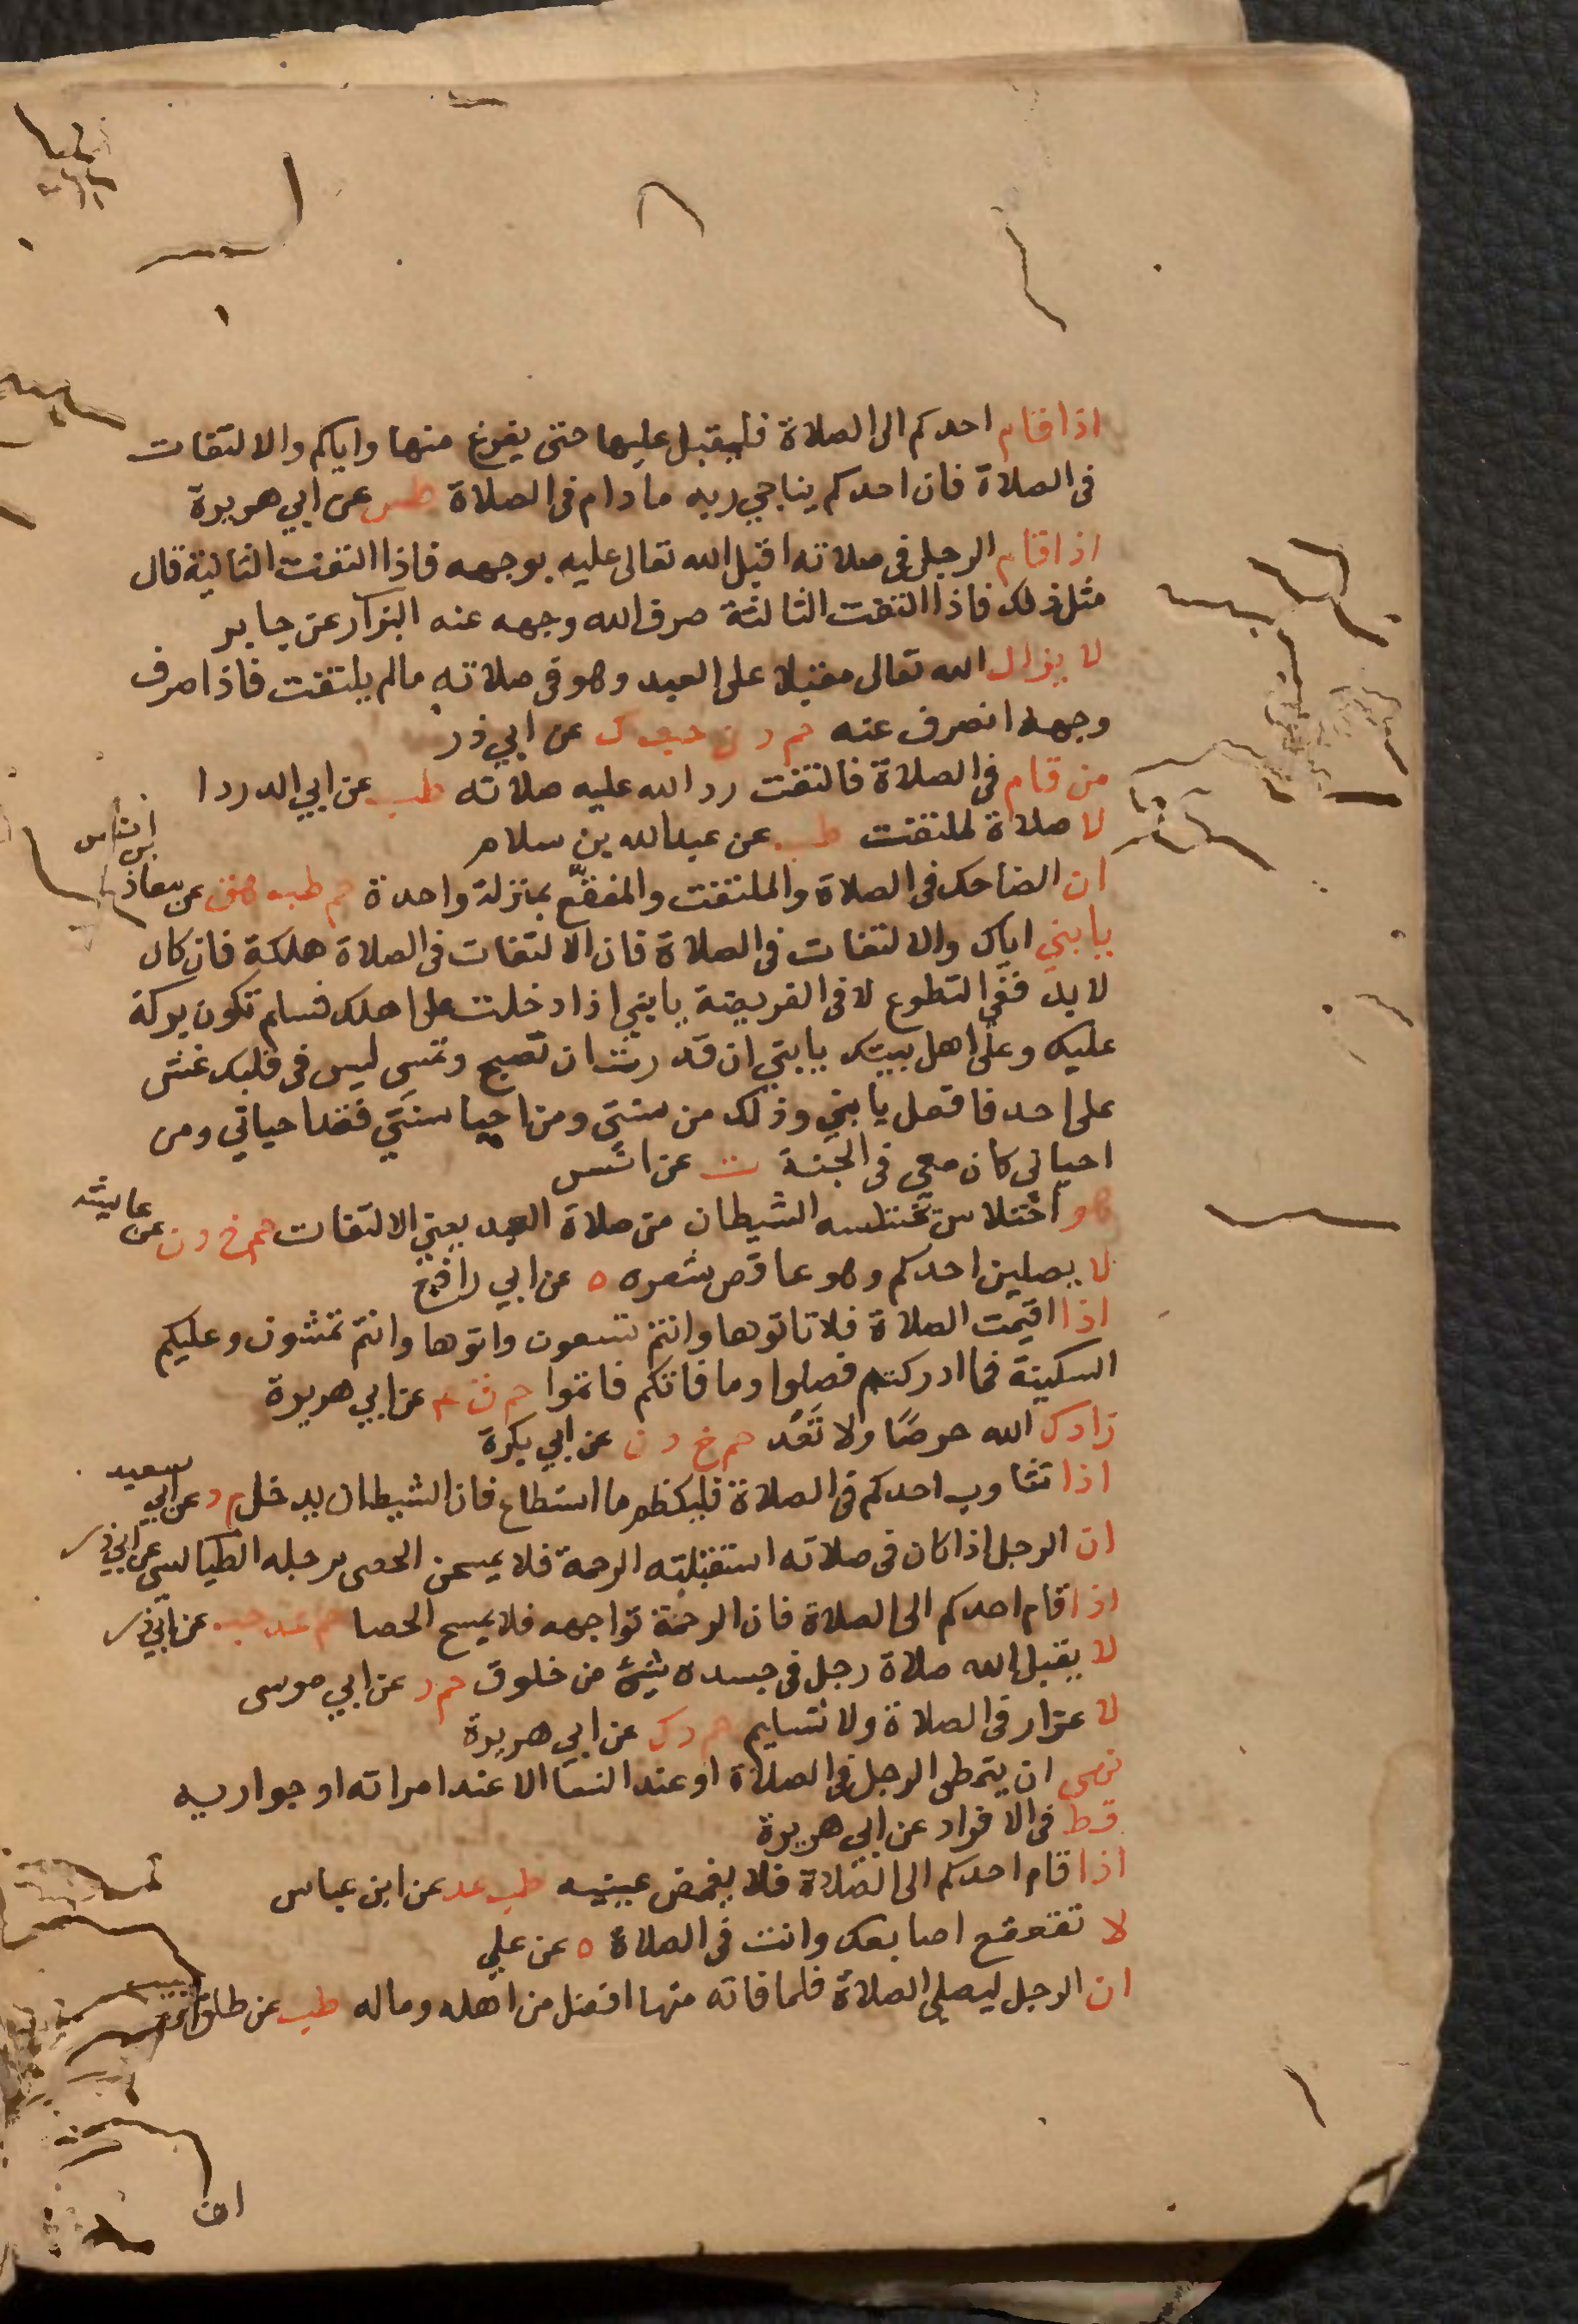 اذا قام احدكم الى الصلاة فليقبل عليها حتى يفرغ منها واياكم والالتفات
فى الصلاة فان احدكم يناجي ربه مادام فى الصلاة طس عن ابي هريرة
اذا قام الرجل فى صلاته اقبل الله تعالى عليه بوجهه فاذا التفت الثانية قال
مثل ذلك فاذا التفت الثالثة صرف الله وجهه عنه البزار عن جابر
لا يزال الله تعالى مقبلا على العبد وهو فى صلاته مالم يلتفت فاذا صرف
وجهه انصرف عنه حم د ن حب ك عن ابي ذر
من قام فى الصلاة فالتفت رد الله عليه صلاته طب عن ابي الدردا
لا صلاة لملتفت طب عن عبدالله بن سلام
ان الضاحك فى الصلاة والملتفت والمفقع بمنزلة واحدة حم طب هق عن معاذ بن انس
يا بني اياك والالتفات فى الصلاة فان الالتفات فى الصلاة هلكة فان كان
لابد ففى التطوع لا فى الفريضة يا بني اذا دخلت على اهلك فسلم تكون بركة
عليك وعلى اهل بيتك يا بني ان قدرت ان تصبح وتمسي ليس فى قلبك غش
على احد فافعل يا بني وذلك من سنتي ومن احيا سنتي فقد احياني ومن
احياني كان معي فى الجنة ت عن انس
هو اختلاس يختلسه الشيطان من صلاة العبد يعني الالتفات حم خ د ن عن عايشه
لا يصلين احدكم وهو عاقص شعره ه عن ابي رافع
اذا اقيمت الصلاة فلا تاتوها وانتم تسعون واتوها وانتم تمشون وعليكم
السكينة فما ادركتم فصلوا وما فاتكم فاتموا حم ق ٤ عن ابي هريرة
زادك الله حرصا ولا تعد حم خ د ن عن ابي بكرة
اذا تثاوب احدكم فى الصلاة فليكظم ما استطاع فان الشيطان يدخل م د عن ابي سعيد
ان الرجل اذا كان فى صلاته استقبلته الرحمة فلا يمسحن الحصى برجله الطيالسي عن ابي ذر
اذا قام احدكم الى الصلاة فان الرحمة تواجهه فلا يمسح الحصا حم عد حب عن ابي ذر
لا يقبل الله صلاة رجل فى جسده شئ من خلوق حم د عن ابي موسى
لا غرار فى الصلاة ولا تسليم حم د ك عن ابي هريرة
نهى ان يتمطى الرجل فى الصلاة او عند النسا الا عند امراته او جواريه
قط فى الافراد عن ابي هريرة
اذا قام احدكم الى الصلاة فلا يغمض عينيه طب عد عن ابن عباس
لا تقعقع اصابعك وانت فى الصلاة ه عن علي
ان الرجل ليصلي الصلاة فلما فاته منها افضل من اهله وماله طب عن طلق
ان